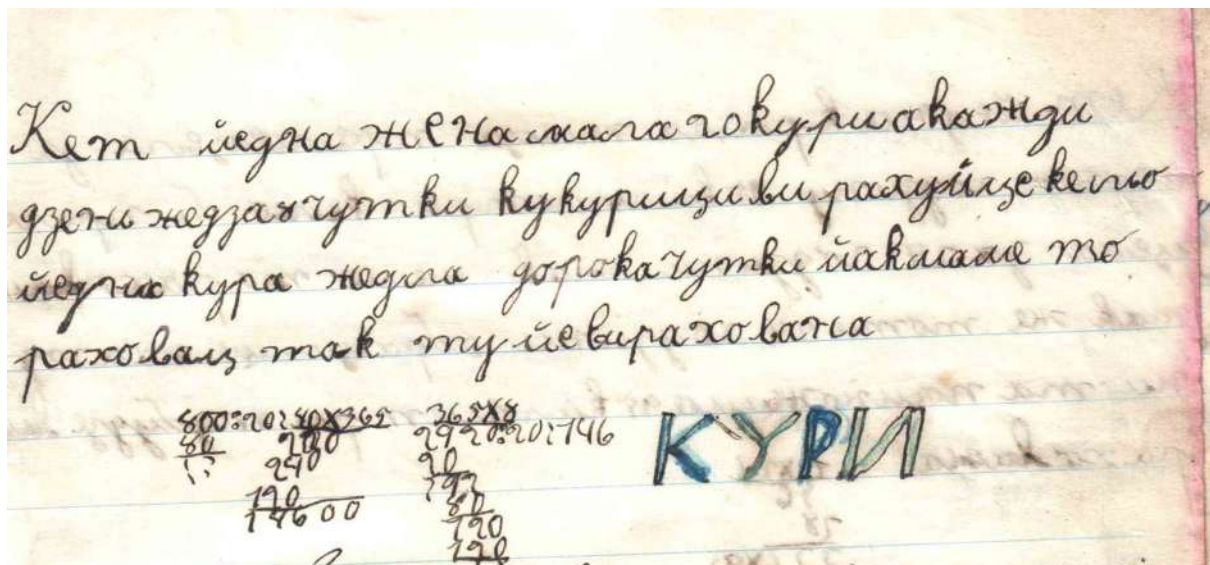 Кет йедна жена мала 20 кури а кажди
дзень жедза 8 чутки кукурици вирахуйце кельо
йедна кура жедла до рока чутки йак маме то
раховац так ту йе вирахована
800:20:40х365 365х8 КУРИ
80 200 2920:20:146
240 20
120 192
14600 80
120
120